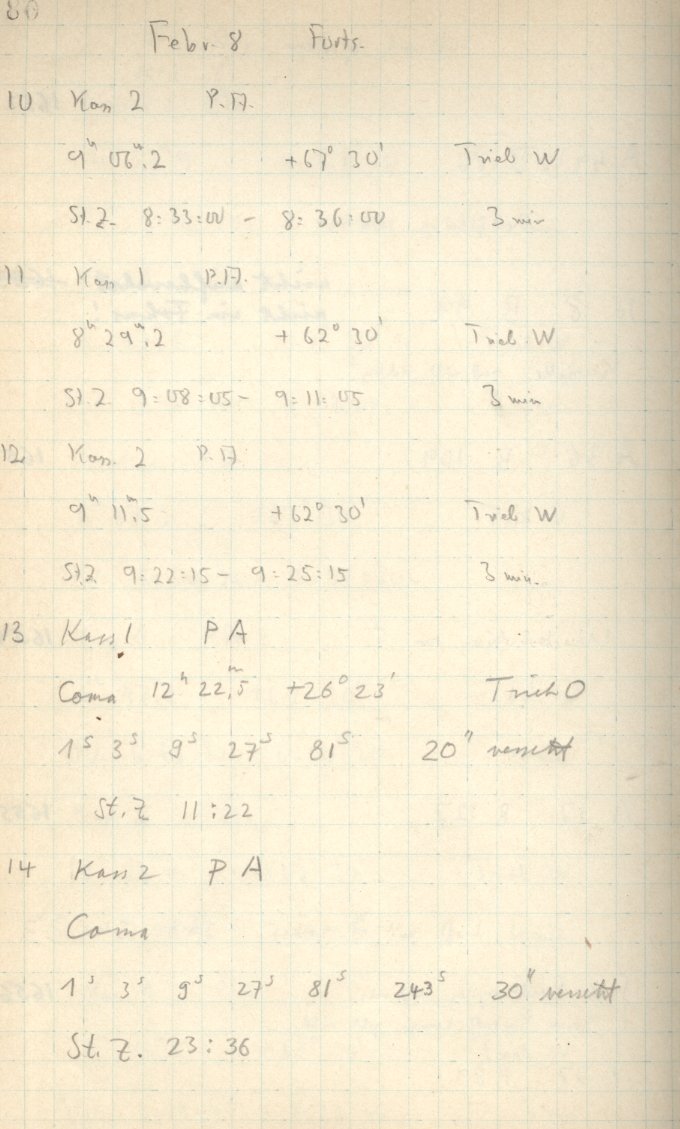 80
Febr. 8 Forts.
10 Kass 2 P.A.
9ʰ 06ᵐ.2 +67° 30' Trieb W
St.Z. 8:33:00 - 8:36:00 3 min
11 Kass 1 P.A.
8ʰ 29ᵐ.2 +62° 30' Trieb W
St.Z 9:08:05 - 9:11:05 3 min
12 Kass. 2 P.A
9ʰ 11ᵐ.5 +62° 30' Trieb W
St.Z 9:22:15 - 9:25:15 3 min.
13 Kass 1 P A
Coma 12ʰ 22ᵐ,5 +26° 23' Trieb O
1ˢ 3ˢ 9ˢ 27ˢ 81ˢ 20" versetzt
St.Z 11:22
14 Kass 2 P A
Coma
1ˢ 3ˢ 9ˢ 27ˢ 81ˢ 243ˢ 30" versetzt
St.Z. 23:36